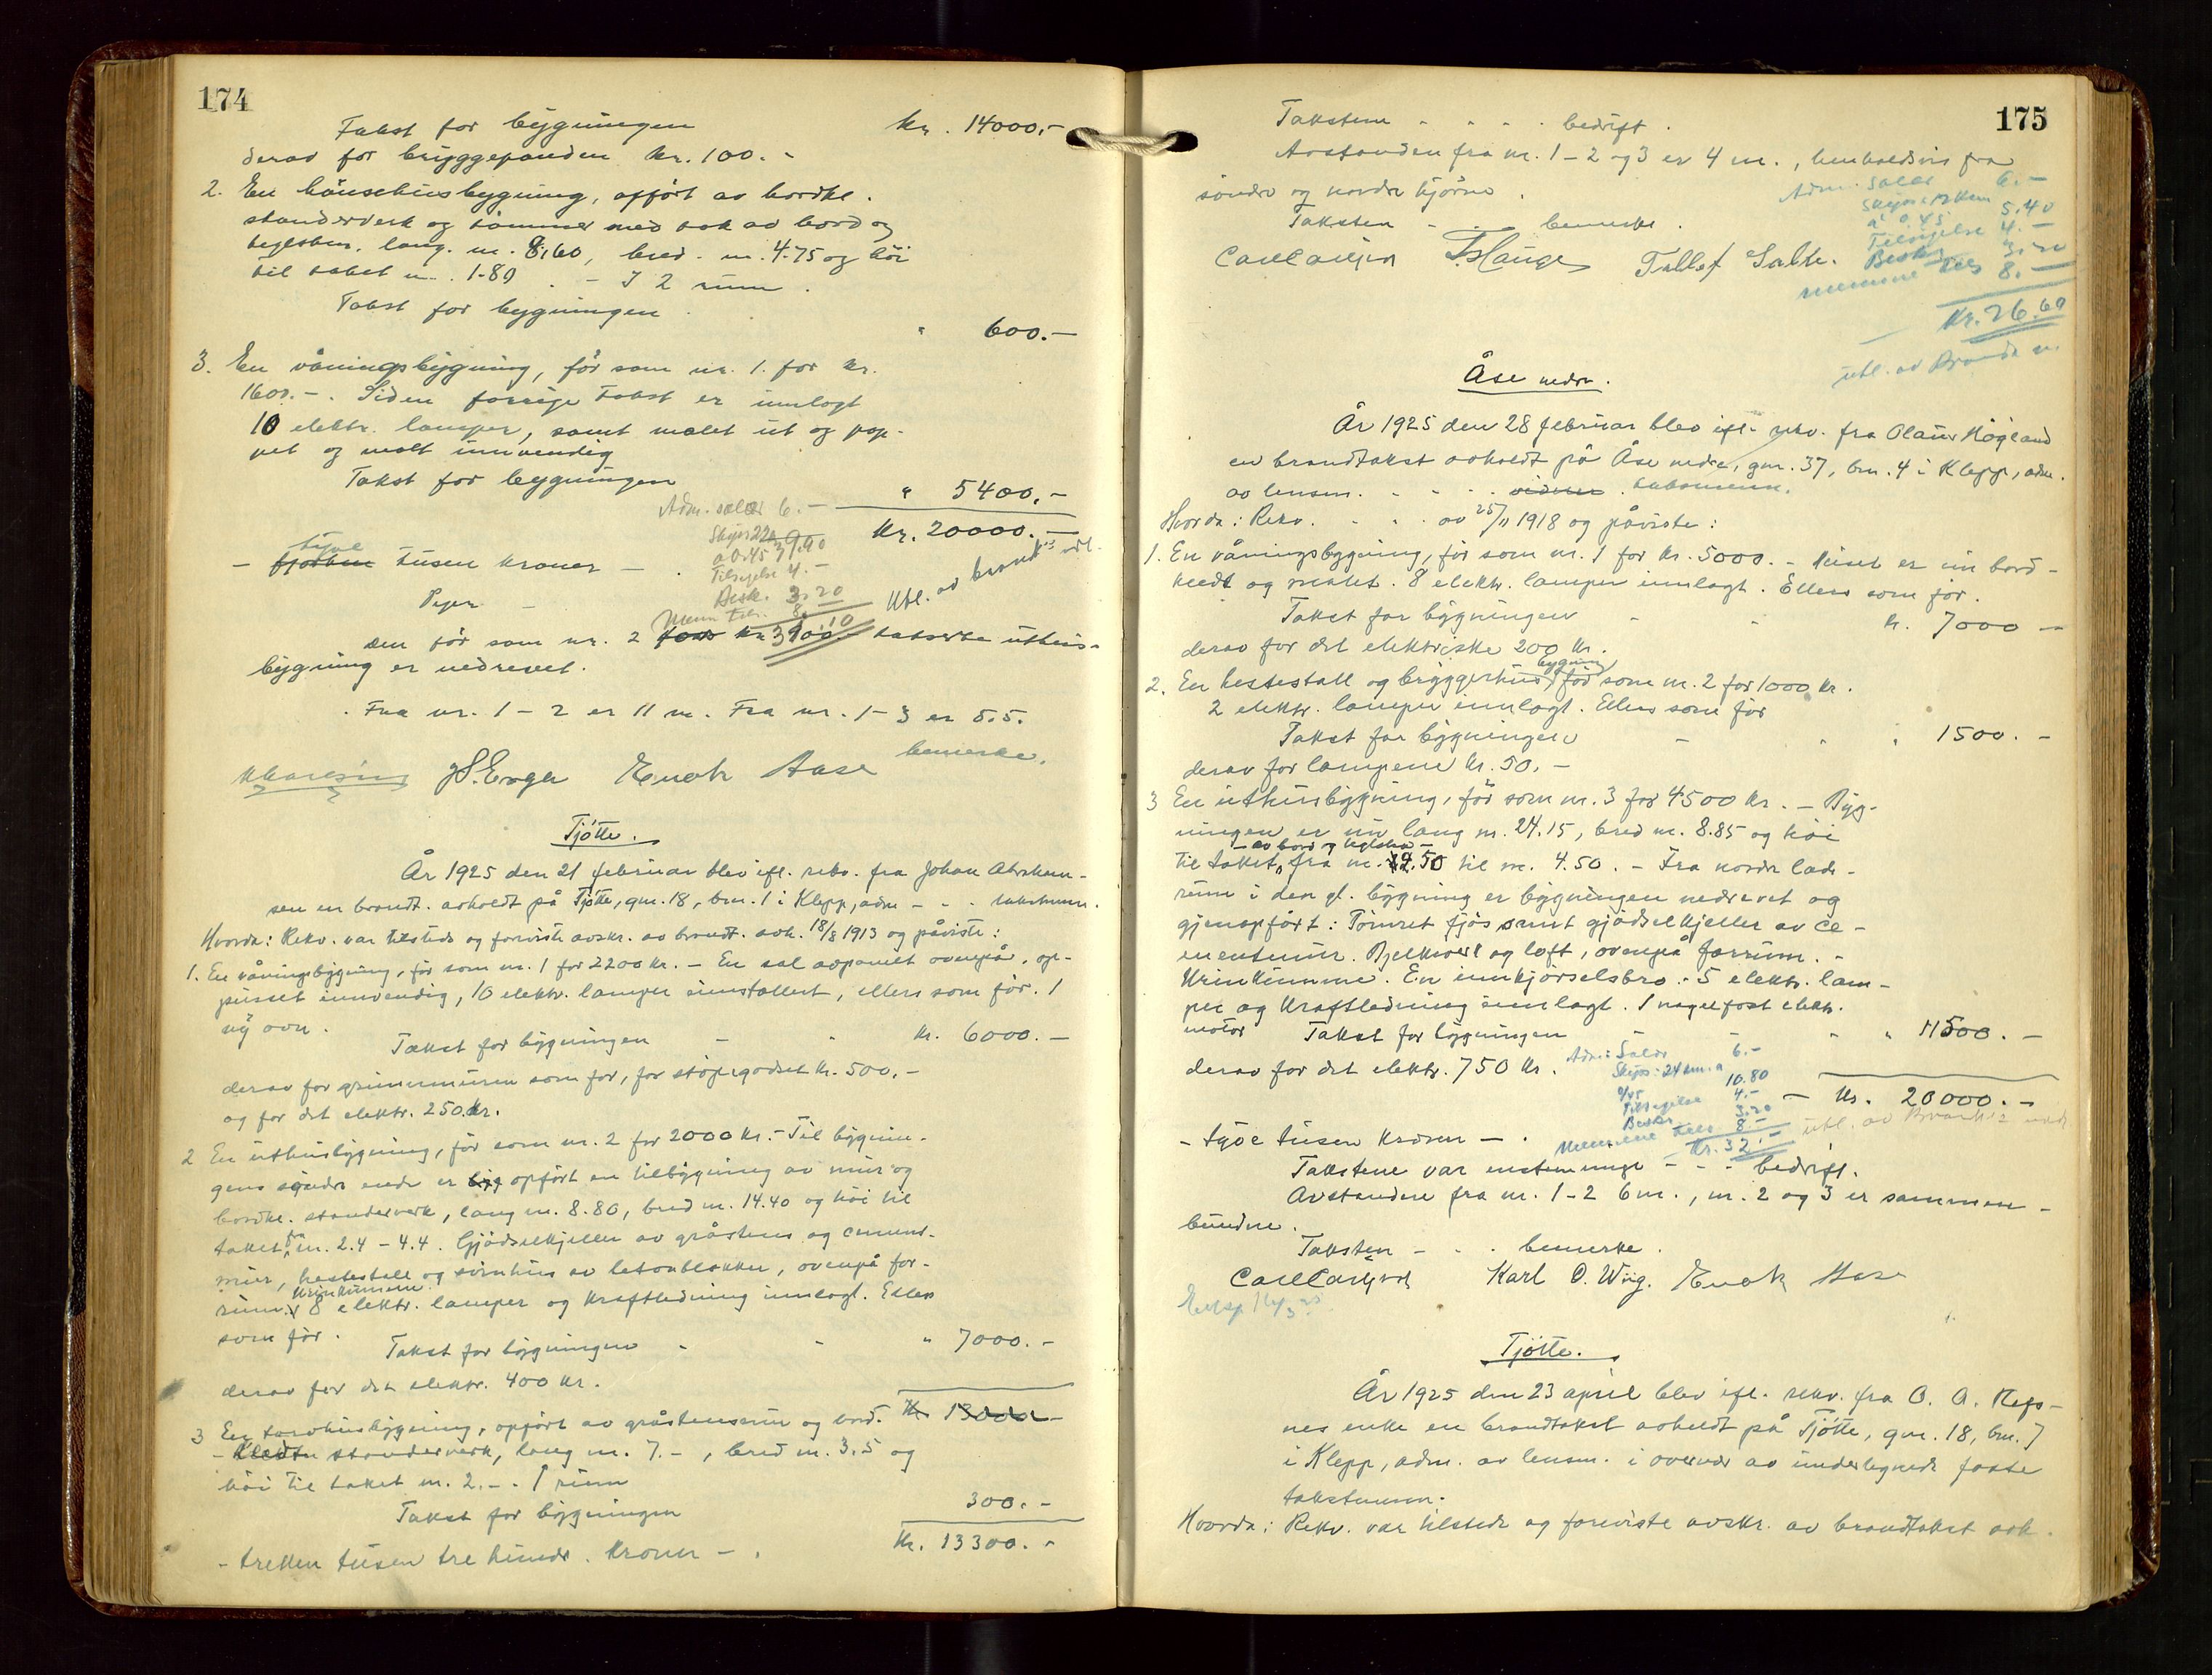 174
Takst for bygningen kr. 14000.-
derav for bryggepanden kr. 100.-
2. En hönsehusbygning, opfört av bordkl.
standerverk og tömmer med tak av bord og
teglsten, lang m. 8.60, bred m. 4.75 og höi
til taket m. 1.80 - I 2 rum.
Takst for bygningen " 600.-
3. En våningsbygning, för som nr. 1 for kr.
1600.-. Siden forrige takst er innlagt
10 elektr. lamper, samt malet ut og pap-
pet og malt innvendig
Takst for bygningen " 5400.-
Kr. 20000.-
Adm. salær 6.-
Skyss 22
a 0.45 9.90
Tilsigelse 4.-
Besk. 3.20
Menn 8.-
Utl. av
- fjorten tusen kroner -
tyve
den för som nr. 2 takserte uthus-
bygning er nedrevet.
Fra nr. 1 - 2 er 11 m. Fra nr. 1 - 3 er 5.5.
bemerke.
Enok Aase
Tjøtte.
År 1925 den 21 februar blev efl. rekv. fra Johan Abraham-
sen en brandt. avholdt på Tjøtte, gnr. 18, bnr. 1 i Klepp, adm - - . takstmenn.
Hvorda: Rekv. var tilstede og foreviste avskr. av brandt. avh. 18/8 1913 og påviste:
1. En våningsbygning, för som nr. 1 for 2200 kr. - En sal avpanelt ovenpå, op-
pusset innvendig, 10 elektr. lamper innstallert, ellers som för. 1
ny ovn.
Takst for bygningen - - kr. 6000.-
derav for grunnmuren som for, for stöpegodset kr. 500.-
og for det elektr. 250 kr.
2 En uthusbygning, för som nr. 2 for 2000 kr. - Til bygnin-
gens söndre ende er opfört en tilbygning av mur og
bordkl. standerverk, lang m. 8.80, bred m. 14.40 og höi til
taket fra m. 2.4 - 4.4. Gjödselkjeller av gråstens og cement-
mur, hestestall og svinhus av betonblokker, ovenpå for-
rum. Urinkumme. 8 elektr. lamper og kraftledning innlagt. Ellers
som för.
Takst for bygningen - - " 7000.-
derav for det elektr. 400 kr.
Kr. 13000.-
3 En torvhusbygning, opfört av gråstensmur og bord-
- klædt standerverk, lang m. 7.-, bred m. 3.5 og
höi til taket m. 2.-. 1 rum
Takst for bygningen 300.-
- tretten tusen tre hundr. kroner -. Kr. 13300.-
175
Takstene - - - - bedrift.
Avstanden fra nr. 1 - 2 og 3 er 4 m., henholdsvis fra
söndre og nordre hjörne.
Taksten - - - bemerke.
Adm. Salær 6.-
Skyss 12 km
à 0.45 5.40
Tilsigelse 4.-
Besk. 3.20
mennene 8.-
Kr. 26.60
utl. av
Carl Carlsen T. Hauge Tollef Salte.
Åse nedre.
År 1925 den 28 februar blev efl. rekv. fra Olaus Högland
en brandtakst avholdt på Åse nedre, gnr. 37, bnr. 4 i Klepp, adm.
av lensm. - - - - vidner. takstmenn.
Hvorda: Rekv. - - - av 25/11 1918 og påviste:
1. En våningsbygning, för som nr. 1 for kr. 5000. - Huset er nu bord-
klædt og malet. 8 elektr. lamper innlagt. Ellers som för.
Takst for bygningen - - k. 7000 -
derav for det elektriske 200 kr.
2. En hestestall og bryggerhusbygning, för som nr. 2 for 1000 kr.
2 elektr. lamper innlagt. Ellers som för
Takst for bygningen - " 1500.-
derav for lampene kr. 50.-
3 En uthusbygning, för som nr. 3 for 4500 kr. - Byg-
ningen er nu lang m. 24.15, bred m. 8.85 og höi
- av bord og teglsten -
til taket, fra m. 2.50 til m. 4.50. - Fra nordre lade-
rum i den gl. bygning er bygningen nedrevet og
gjenopfört: Tömret fjös samt gjödselkjeller av ce-
mentmur. Bjelkverk og loft, ovenpå forrum. -
Urinkumme. En innkjörselsbro. - 5 elektr. lam-
per og kraftledning innlagt. 1 nagelfast elektr.
motor Takst for bygningen - - " 11500.-
derav for det elektr. 750 kr.
Adm: Salær 6.-
Skyss: 24 km. a
0/45 10.80
Tilsigelse 4.-
Besk. 3.20
Mennene 8.-
Kr. 32.-
- Kr. 20000.-
utl. av
- tyve tusen kroner -.
Takstene var enstemmige - - - bedrift.
Avstandene fra nr. 1 - 2 6 m., nr. 2 og 3 er sammen-
bundne.
Taksten - - . bemerke.
Carl Carlsen Karl O. Wiig. Enok Aase
Tjøtte.
År 1925 den 23 april blev efl. rekv. fra O. A. Refs-
nes enke en brandtakst avholdt på Tjøtte, gnr. 18, bnr. 7
i Klepp, adm. av lensm. i overvær av undertegnede faste
takstmenn.
Hvorda: Rekv. var tilstede og foreviste avskr. av brandtakst avh.